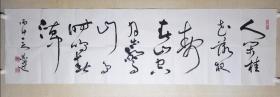 人閒桂
花落夜
静春
山空
月出驚
山鳥
時鳴春
澗中